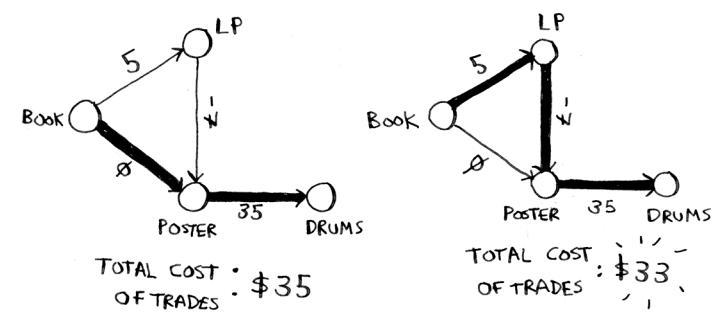 LP
5
BOOK
-7
Ø
35
POSTER
DRUMS
TOTAL COST
OF TRADES : $35
LP
5
BOOK
-7
Ø
35
POSTER
DRUMS
TOTAL COST
OF TRADES : $33